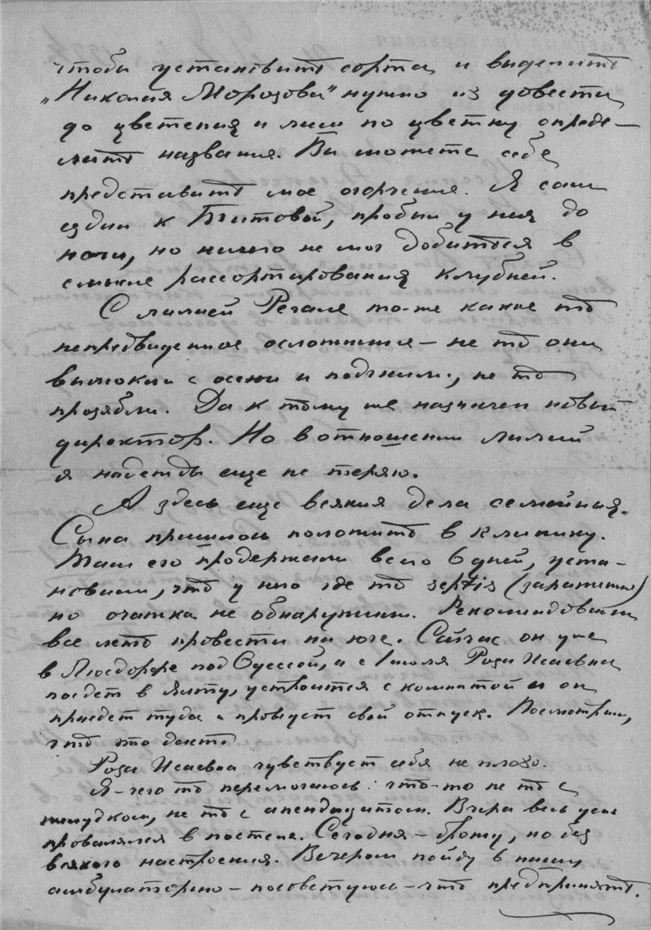 чтобы установить сорта и выделить
„Николая Морозова" нужно их довести
до цветения и лишь по цветку опреде-
лить названия. Вы можете себе
представить мое огорчение. Я сам
ездил к Бтитовой, пробыл у нея до
ночи, но ничего не мог добиться в
смысле рассортирования клубней.
С лилией Регале то-же какое то
непредвиденное осложнение – не то они
вымокли с осени и подгнили, не то
прозябли. Да к тому же назначен новый
директор. Но в отношении лилий
я надежды еще не теряю.
А здесь еще всякия дела семейныя.
Сына пришлось положить в клинику.
Там его продержали всего 6 дней, уста-
новили, что у него где то septis (заражение)
но очажка не обнаружили. Рекомендовали
все лето провести на юге. Сейчас он уже
в Люсдорфе под Одессой, а с 1 июля Роза Исаевна
поедет в Ялту, устроится с комнатой и он
приедет туда и проведут свой отпуск. Посмотрим,
что это даст.
Роза Исаевна чувствует себя не плохо.
Я – чего то перемогаюсь: что-то не то с
желудком, не то с апендицитом. Вчера весь день
провалялся в постели. Сегодня – брожу, но без
всякого настроения. Вечером пойду в нашу
амбулаторию – посоветуюсь – что предпринять.